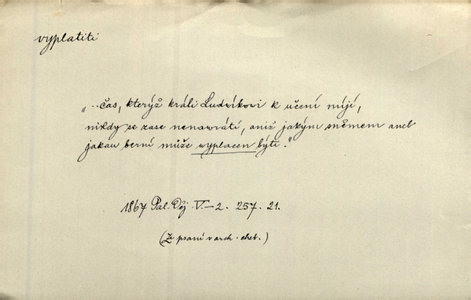 vyplatiti
„··čas, kterýž králi Ludvíkovi k učení míjí,
nikdy se zase nenawrátí, aniž jakým sněmem aneb
jakau berní může wyplacen býti."
1867 Pal. Děj. V.–2. 257. 21.
(Z psaní v arch. cheb.)